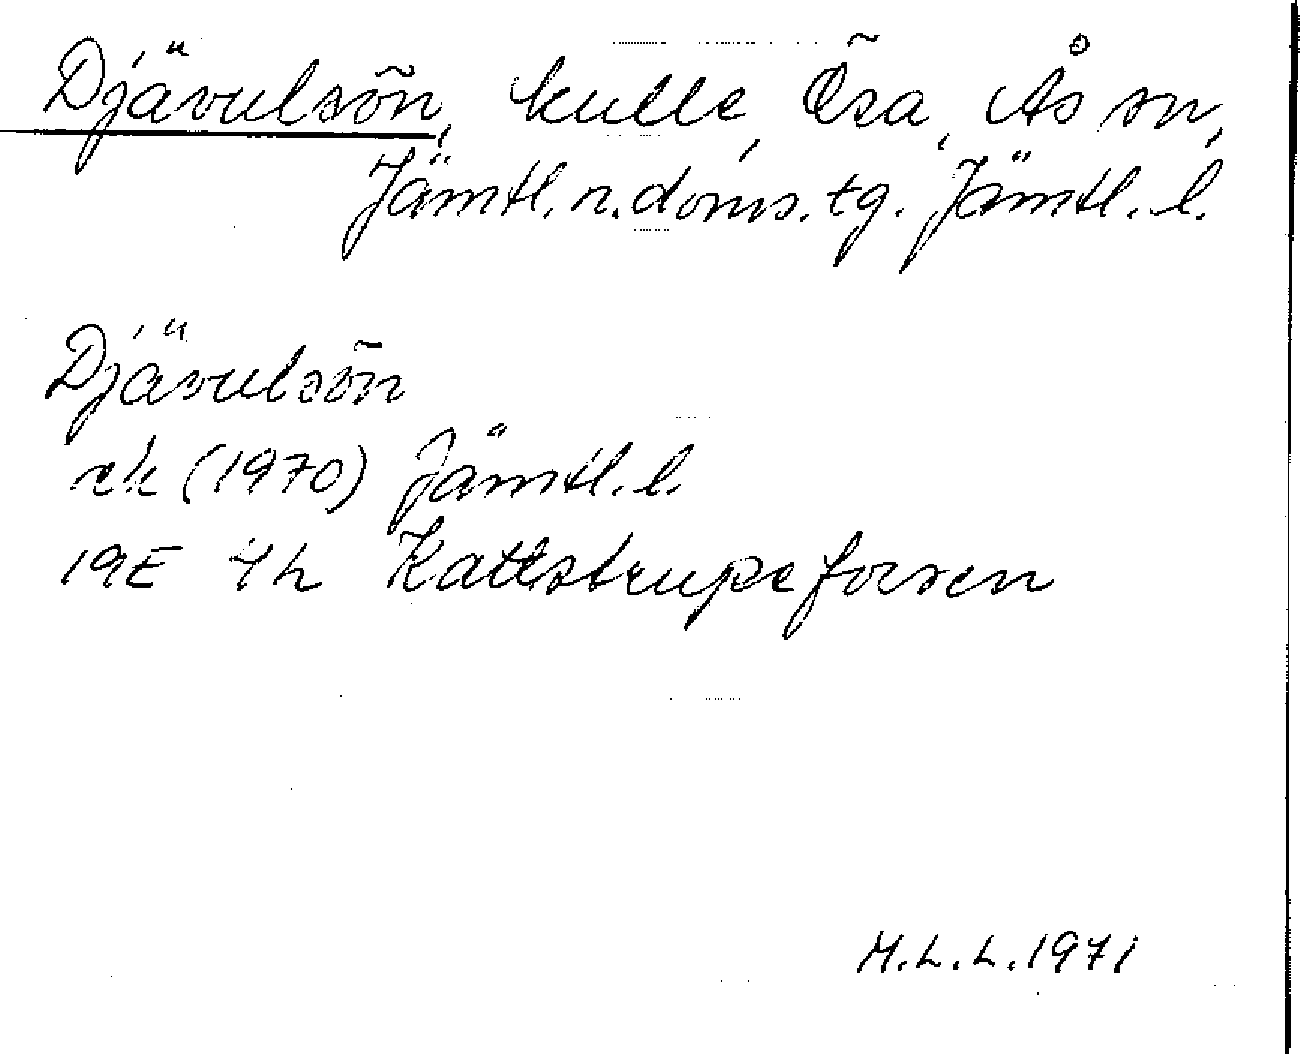 Djävulsön, kulle, Ösa, Ås sn,
Jämtl. n. doms. tg. Jämtl. l.
Djävulsön
rk (1970) Jämtl. l.
19E 4h Kattstrupeforsen
M.L.L. 1971